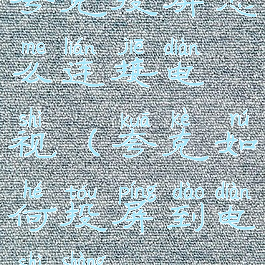 me lián jiē diàn
么连接电
shì kuā kè rú
视（夸克如
hé tóu píng dào diàn
何投屏到电
shì shàng